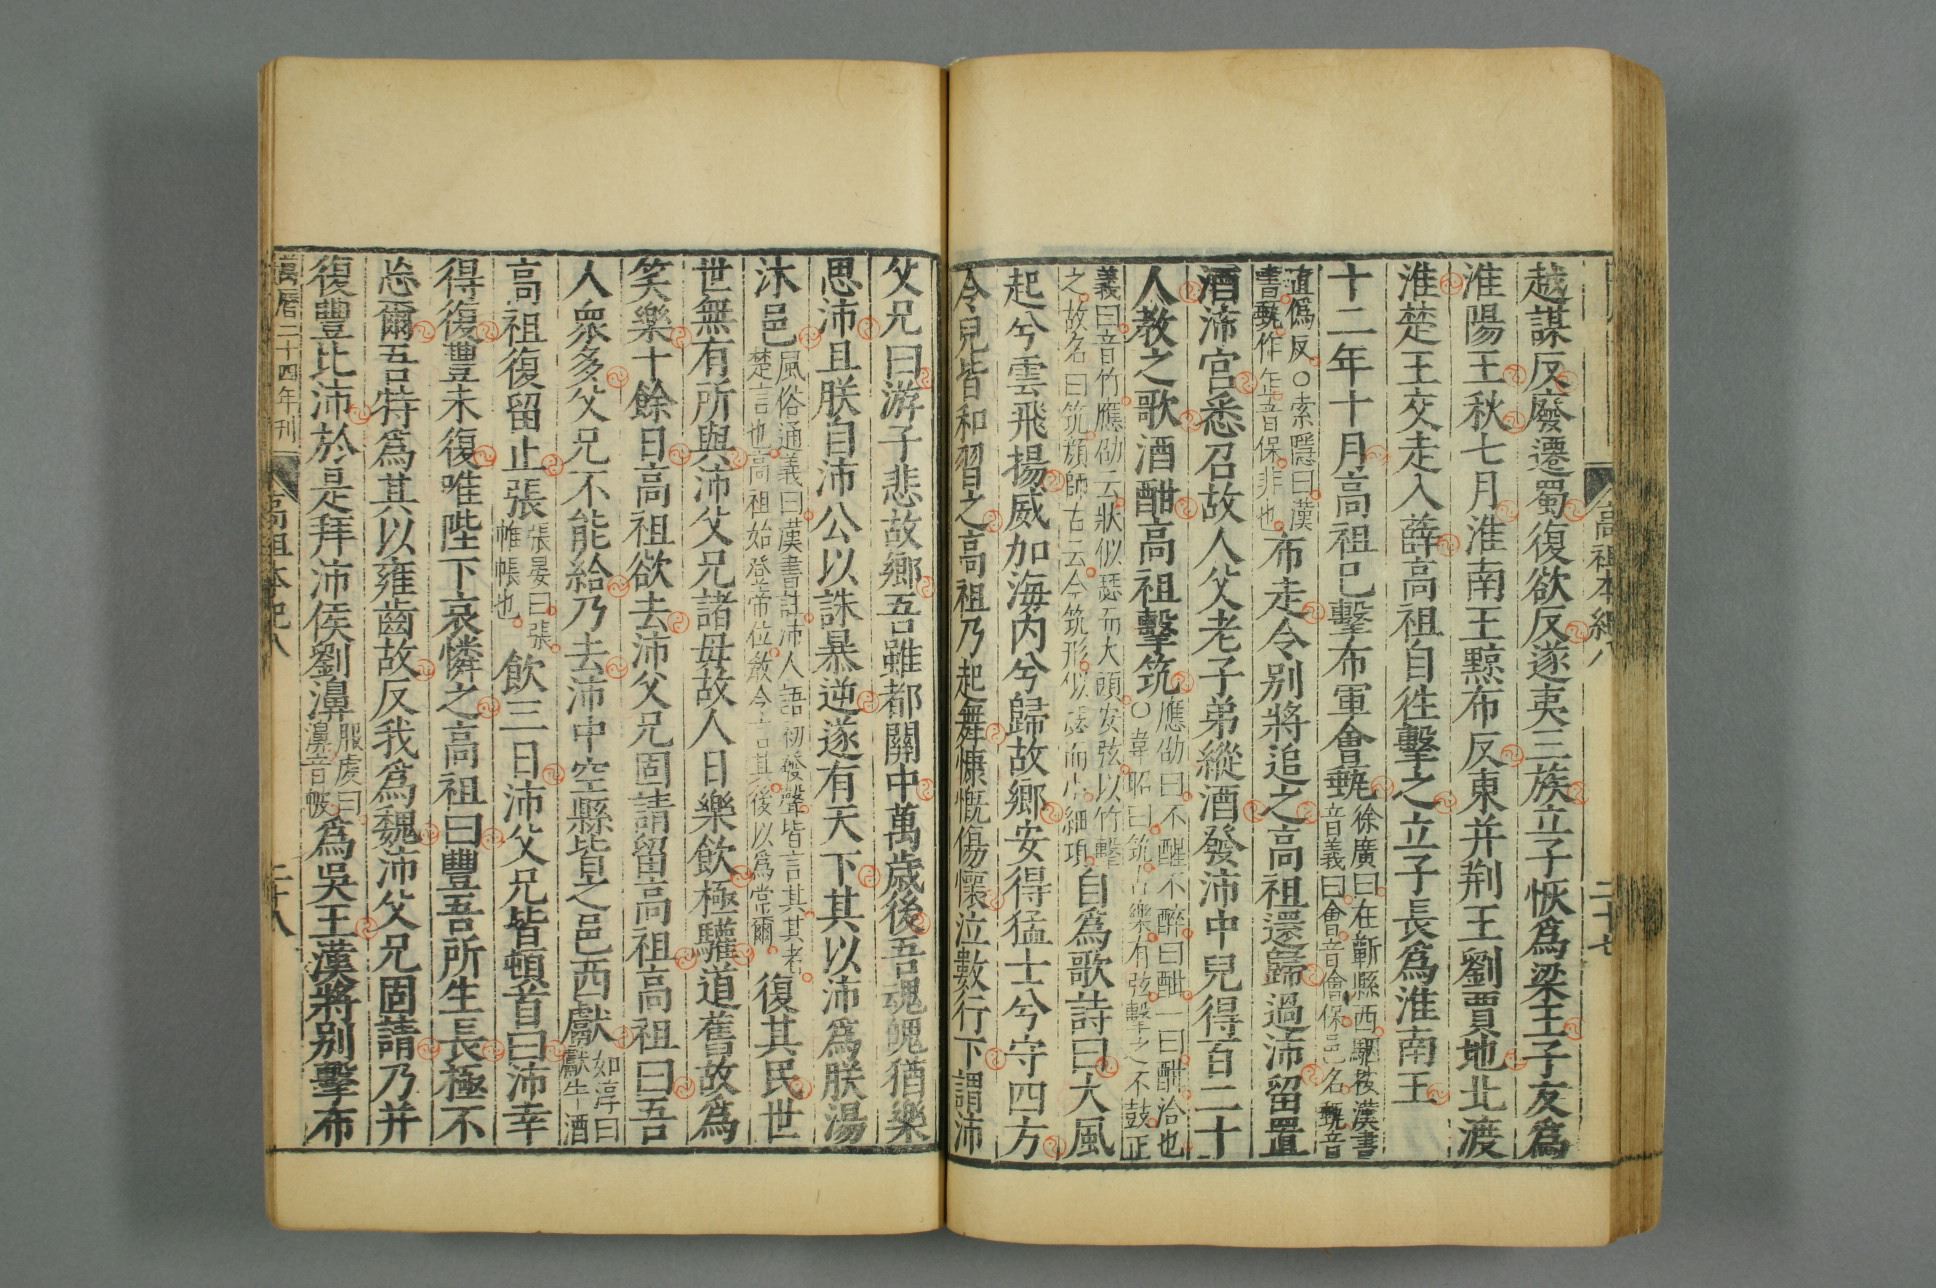 高祖本紀八
二十七
越謀反廢遷蜀復欲反遂夷三族立子恢爲梁王子友爲
淮陽王秋七月淮南王黥布反東并荆王劉賈地北渡
淮楚王交走入薛高祖自徃擊之立子長爲淮南王
十二年十月高祖已擊布軍會甀徐廣曰在蘄縣西駰按漢書音義曰會音會保邑名甀音
直僞反○索隱曰漢書甀作缶音保非也布走令别將追之高祖還歸過沛留置
酒沛宫悉召故人父老子弟縱酒發沛中兒得百二十
人教之歌酒酣高祖擊筑應劭曰不醒不醉曰酣一曰酣洽也○韋昭曰筑古樂有弦擊之不鼓正
義曰音竹應劭云狀似瑟而大頭安弦以竹擊之故名曰筑顔師古云今筑形似瑟而小細項自爲歌詩曰大風
起兮雲飛揚威加海内兮歸故鄉安得猛士兮守四方
令兒皆和習之高祖乃起舞慷慨傷懷泣數行下謂沛
父兄曰游子悲故鄉吾雖都關中萬歲後吾魂魄猶樂
思沛且朕自沛公以誅暴逆遂有天下其以沛爲朕湯
沐邑風俗通義曰漢書註沛人語初發聲皆言其其者楚言也高祖始登帝位敎令言其後以爲常爾復其民世
世無有所與沛父兄諸母故人日樂飲極驩道舊故爲
笑樂十餘日高祖欲去沛父兄固請留高祖高祖曰吾
人衆多父兄不能給乃去沛中空縣皆之邑西獻如淳曰獻牛酒
高祖復留止張張晏曰張帷帳也飲三日沛父兄皆頓首曰沛幸
得復豐未復唯陛下哀憐之高祖曰豐吾所生長極不
忘爾吾特爲其以雍齒故反我爲魏沛父兄固請乃并
復豐比沛於是拜沛侯劉濞服虔曰濞音帔爲吳王漢將别擊布
萬曆二十四年刊
高祖本紀八
二十八